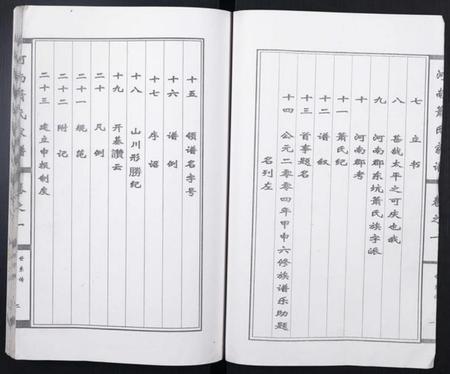 七 立书
八 甚哉太平之可庆也哉
九 河南郡东坑萧氏族字派
十 河南郡考
十一 萧氏纪
十二 谱叙
十三 首事题名
十四 公元二零零四年甲申六修族谱乐助题
名列左
十五 领谱名字号
十六 谱例
十七 序
十八 山川形勝纪
十九 开基讚云
二十 凡例
二十一 规范
二十二 附记
二十三 建立申报制度
河南萧氏家谱
卷之一